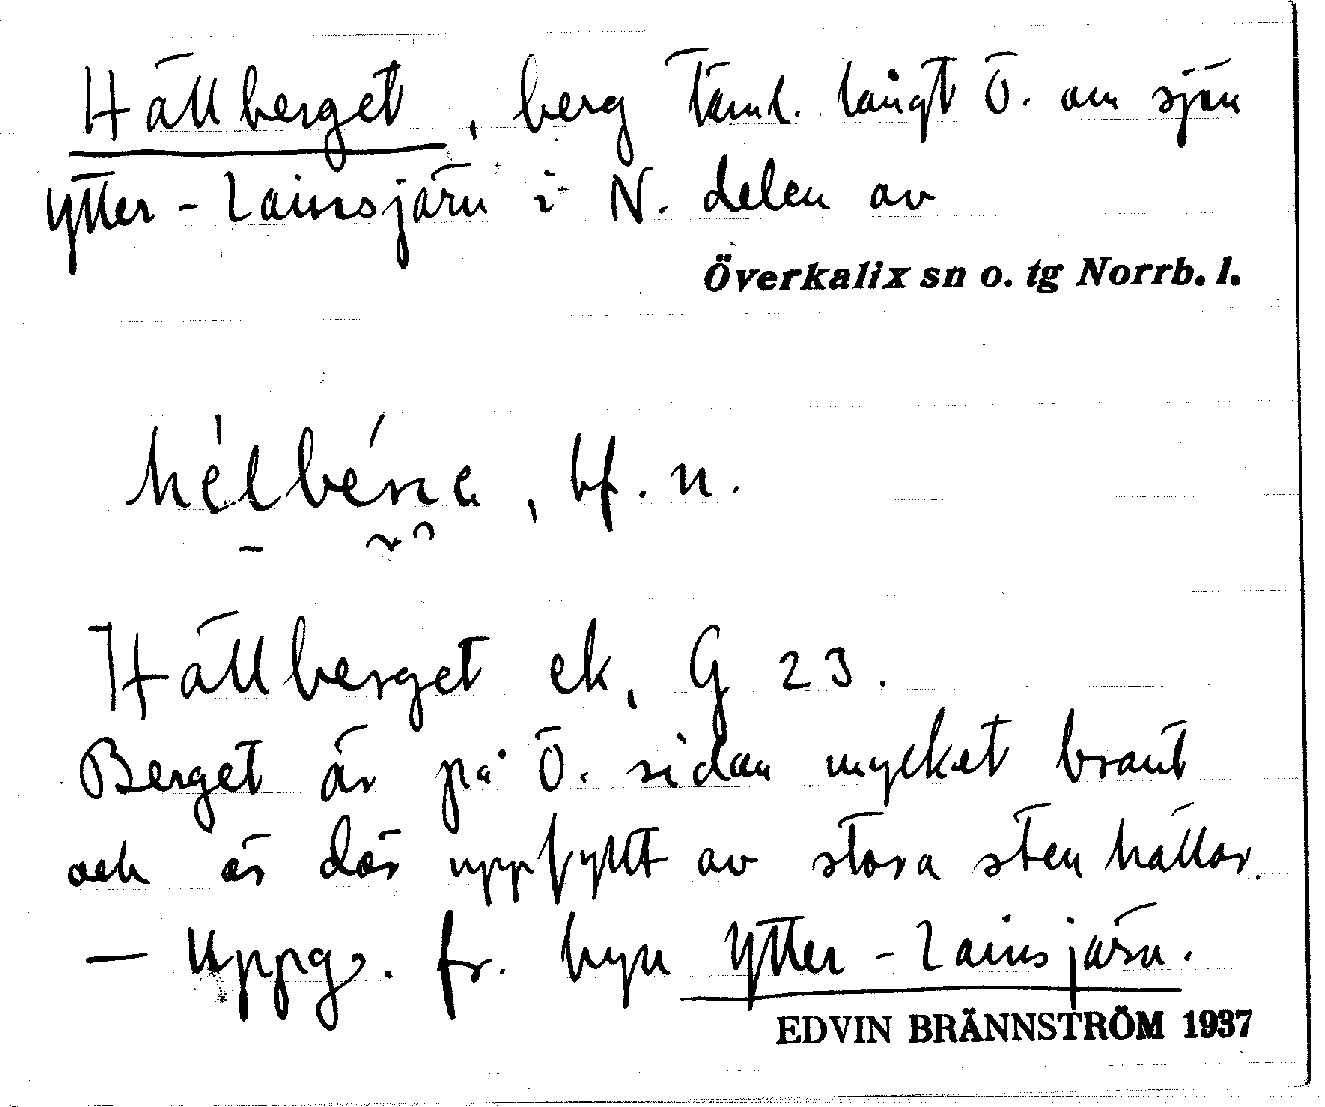 Hällberget, berg täml. långt Ö. om sjön
Ytter-Lainsjärn i N. delen av
Överkalix sn o. tg Norrb. l.
bf. n.
Hällberget ek, G 23.
Berget är på Ö. sidan mycket brant
och är där uppfyllt av stora stenhällar.
— Uppg. fr. byn Ytter-Lainsjärn.
EDVIN BRÄNNSTRÖM 1937